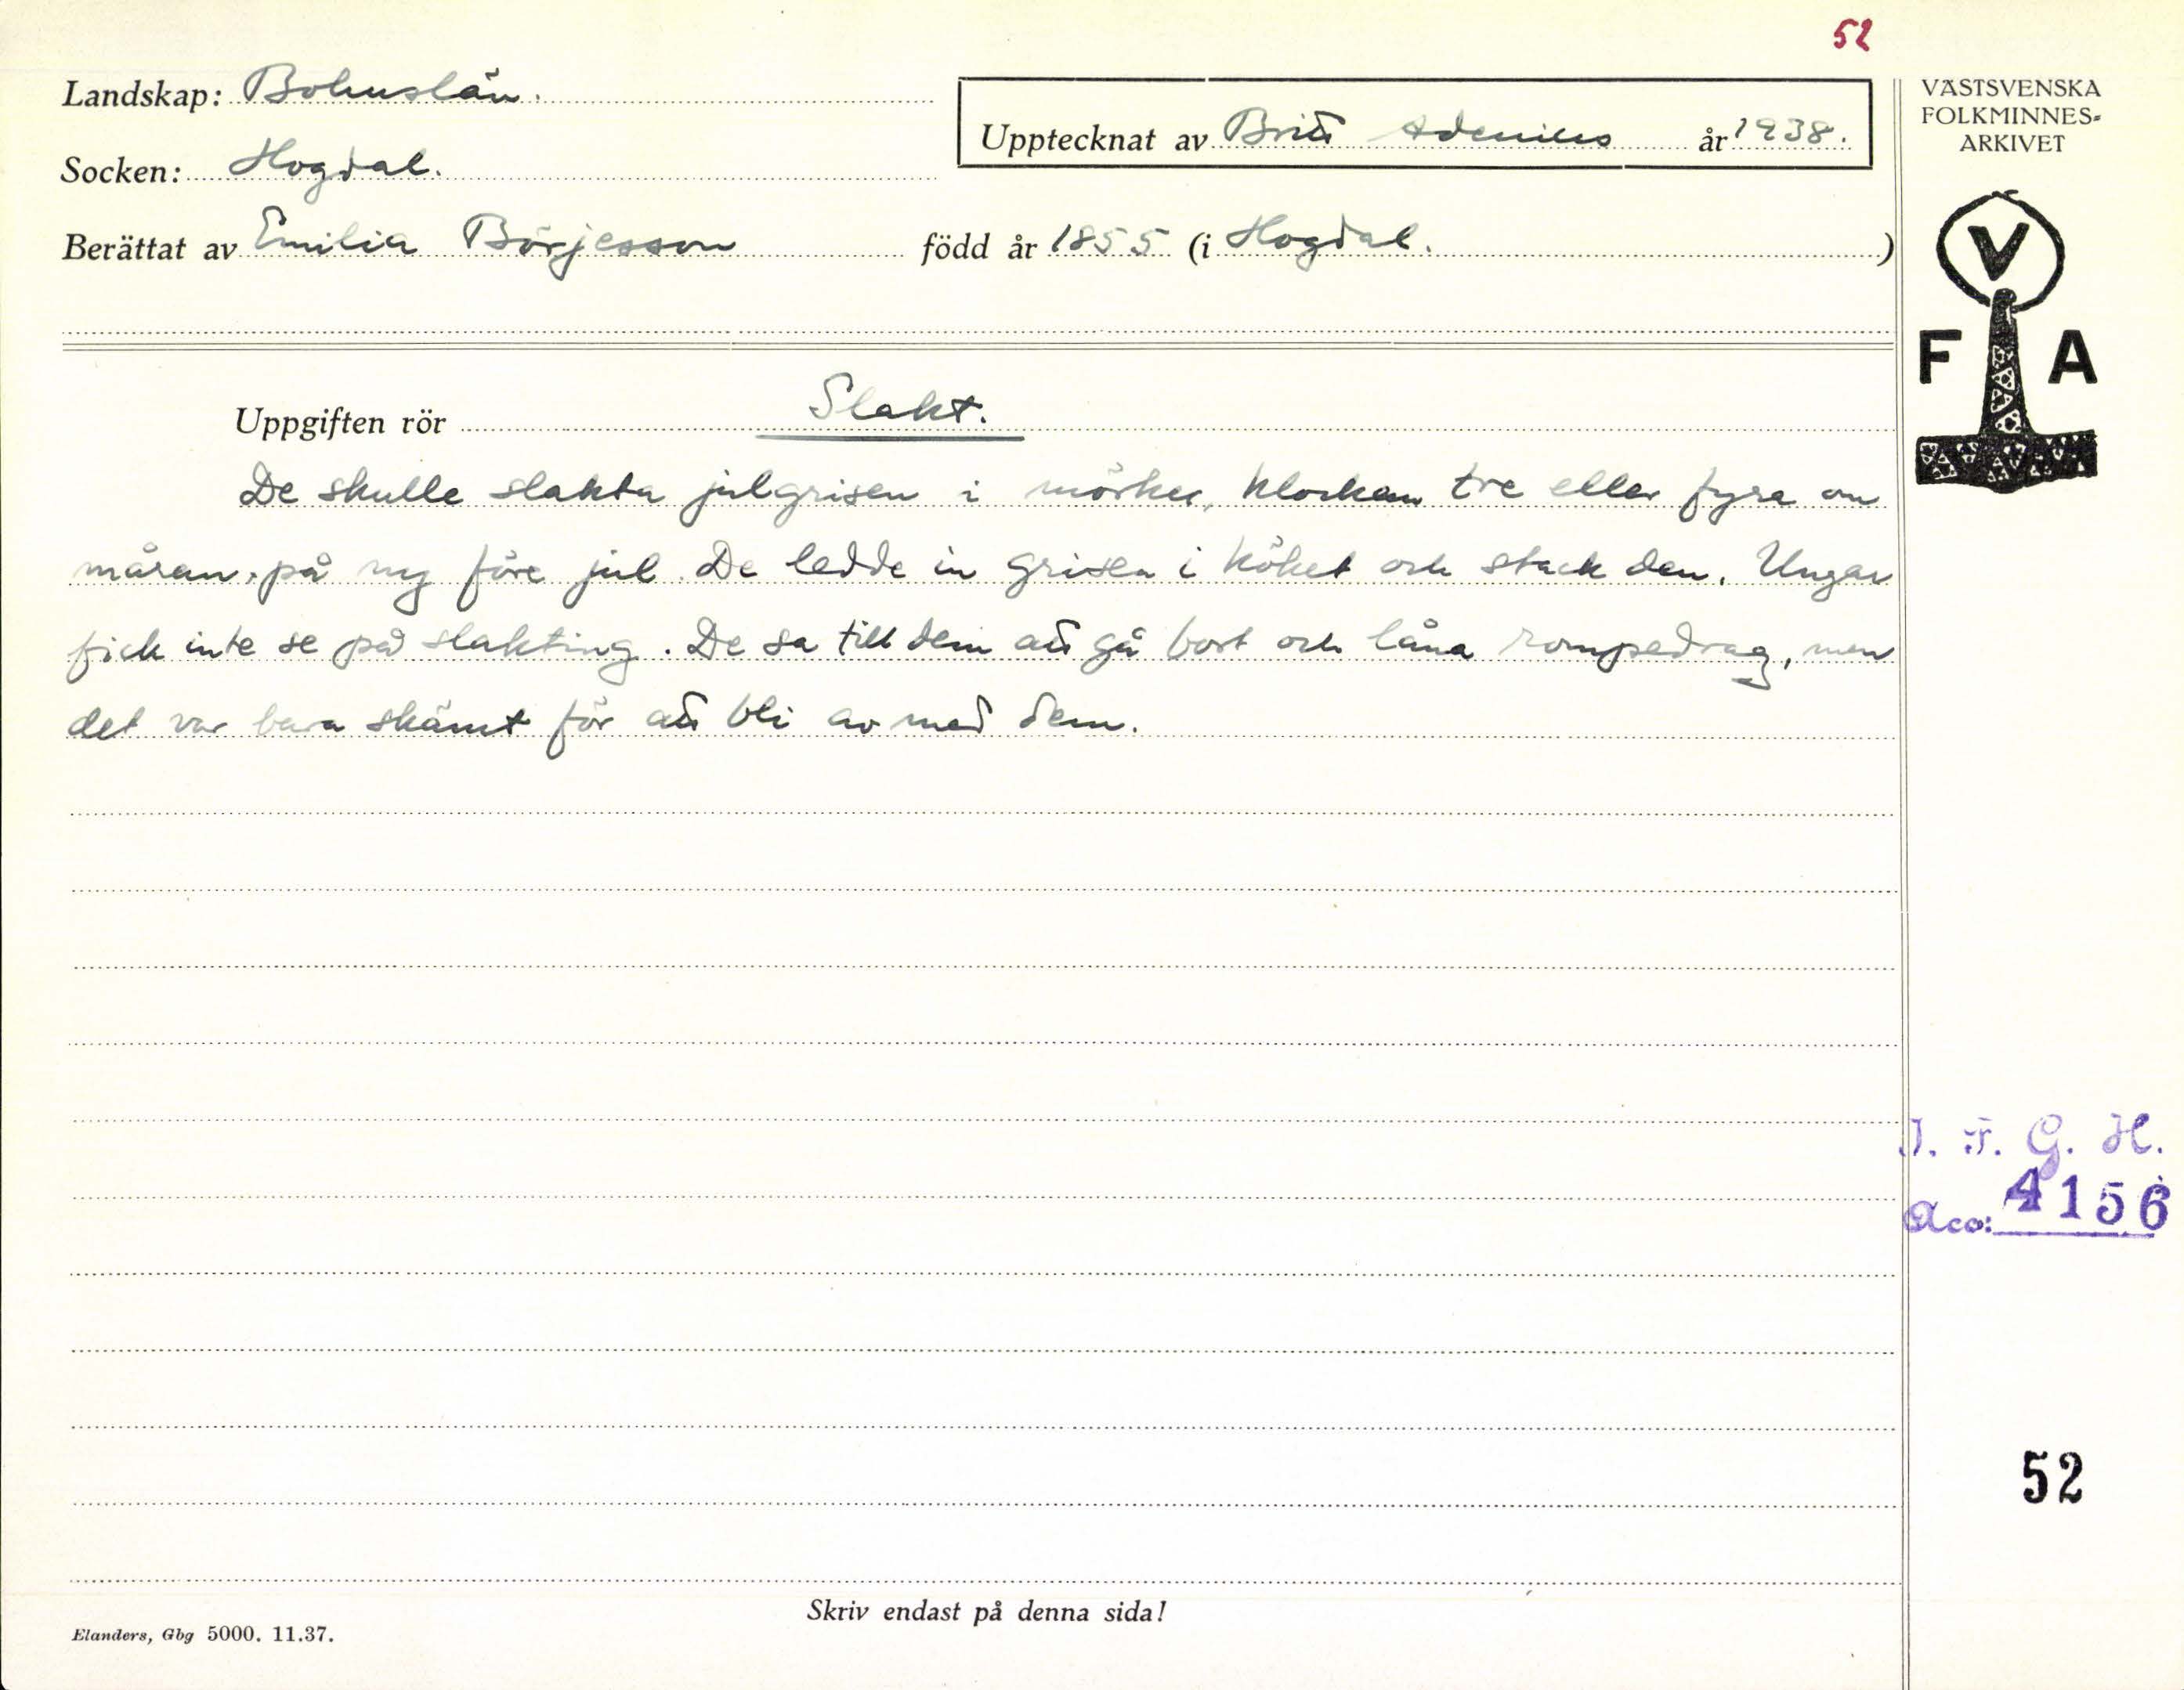 52
Landskap: Bohuslän.
Upptecknat av Britt Adenius år 1938.
Socken: Hogdal.
Berättat av Emilia Börjesson född år 1855 (i Hogdal. )
VÄSTSVENSKA
FOLKMINNES-
ARKIVET
V
F A
Uppgiften rör Slakt.
De skulle slakta julgrisen i mörker, klockan tre eller fyra om
måran, på ny före jul. De ledde in grisen i köket och stack den. Ungar
fick inte se på slakting. De sa till dem att gå bort och låna rompedrag, men
det var bara skämt för att bli av med dem.
I. F. G. H.
Acc: 4156
52
Skriv endast på denna sida!
Elanders, Gbg 5000. 11.37.